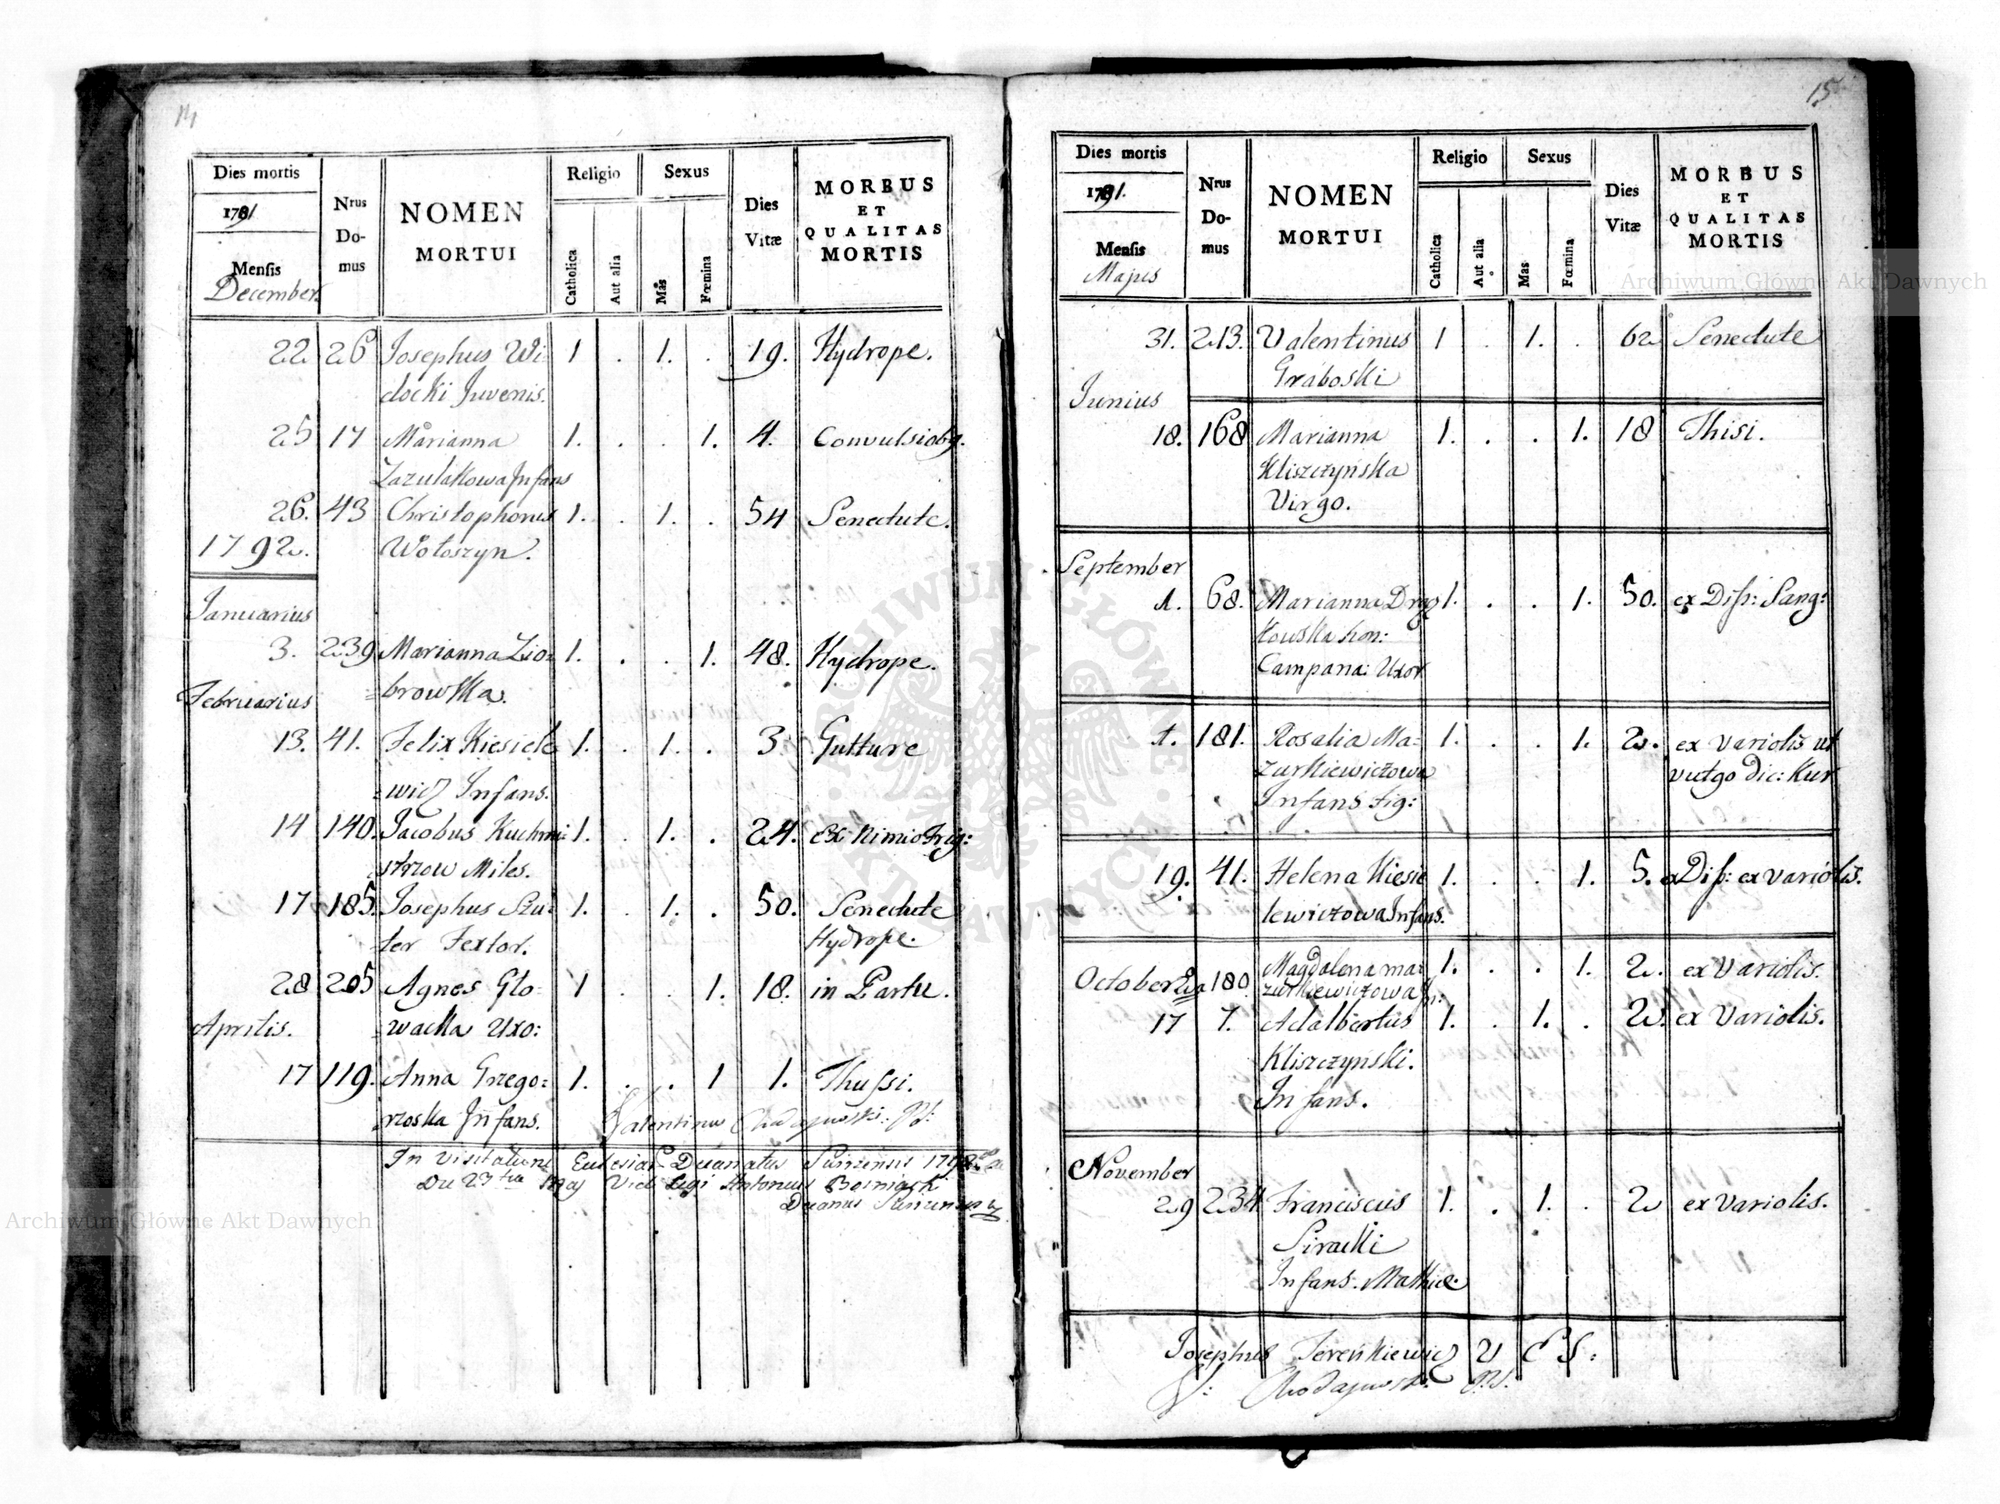 14
Dies mortis
1791.
Mensis
December.
Nrus Do-mus
NOMEN MORTUI
Religio
Catholica
Aut alia
Sexus
Mas
Fœmina
Dies Vitæ
MORBUS ET QUALITAS MORTIS
22 26 Josephus Wi- 1 . 1. . 19. Hydrope.
docki Juvenis.
25 17 Marianna 1. . . 1. 4. Convulsio
Zazulakowa Infans
26. 43 Christophorus 1. . 1. . 54 Senectute.
1792. Wołoszyn.
Januarius
3. 239 Marianna Zio- 1. . . 1. 48. Hydrope.
browska.
Februarius
13. 41. Felix Kiesiele 1. . 1. . 3. Gutture
wicz Infans.
14 140. Jacobus Kuchmi- 1. . 1. . 24. ex nimio Frig:
strzow Miles.
17 185. Josephus Szu- 1. . 1. . 50. Senectute
ter Textor. Hydrope.
28 205 Agnes Gło- 1 . . 1. 18. in Partu.
wacka Uxo:
Aprilis.
17 119. Anna Grzego- 1. . . 1 1. Thussi.
rzoska Infans.
Valentinus
In visitatione Ecclesiar Decanatus 1792
Die 23tia Maj Vidi Legi Antonius
Decanus
15
Dies mortis
1791.
Mensis
Majus
Nrus Do-mus
NOMEN MORTUI
Religio
Catholica
Aut alia
Sexus
Mas
Fœmina
Dies Vitæ
MORBUS ET QUALITAS MORTIS
31. 213. Valentinus 1 . 1. . 62 Senectute
Graboski
Junius
18. 168 Marianna 1. . . 1. 18 Thisi.
Kliszczyńska
Virgo.
September
1. 68. Marianna Drą 1. . . 1. 50. ex Diss: Sang:
kowska hon:
Campana: Uxor
1. 181. Rosalia Ma- 1. . . 1. 2. ex Variolis ut
zurkiewiczowa vulgo dic: Kur
Infans Fig:
19. 41. Helena Kiesie 1. . . 1. 5. Diss: ex variolis.
lewiczowa Infans.
October 2da 180 Magdalena ma- 1. . . 1. 2. ex Variolis.
zurkiewiczowa In:
17 7. Adalbertus 1. . 1. . 2. ex Variolis.
Kliszczyński.
Infans.
November
29 234 Franciscus 1. . 1. . 2 ex Variolis.
Siracki
Infans. Mathiæ.
Josephus Tereńkiewicz
Archiwum Główne Akt Dawnych
Archiwum Główne Akt Dawnych
ARCHIWUM GŁÓWNE AKT DAWNYCH